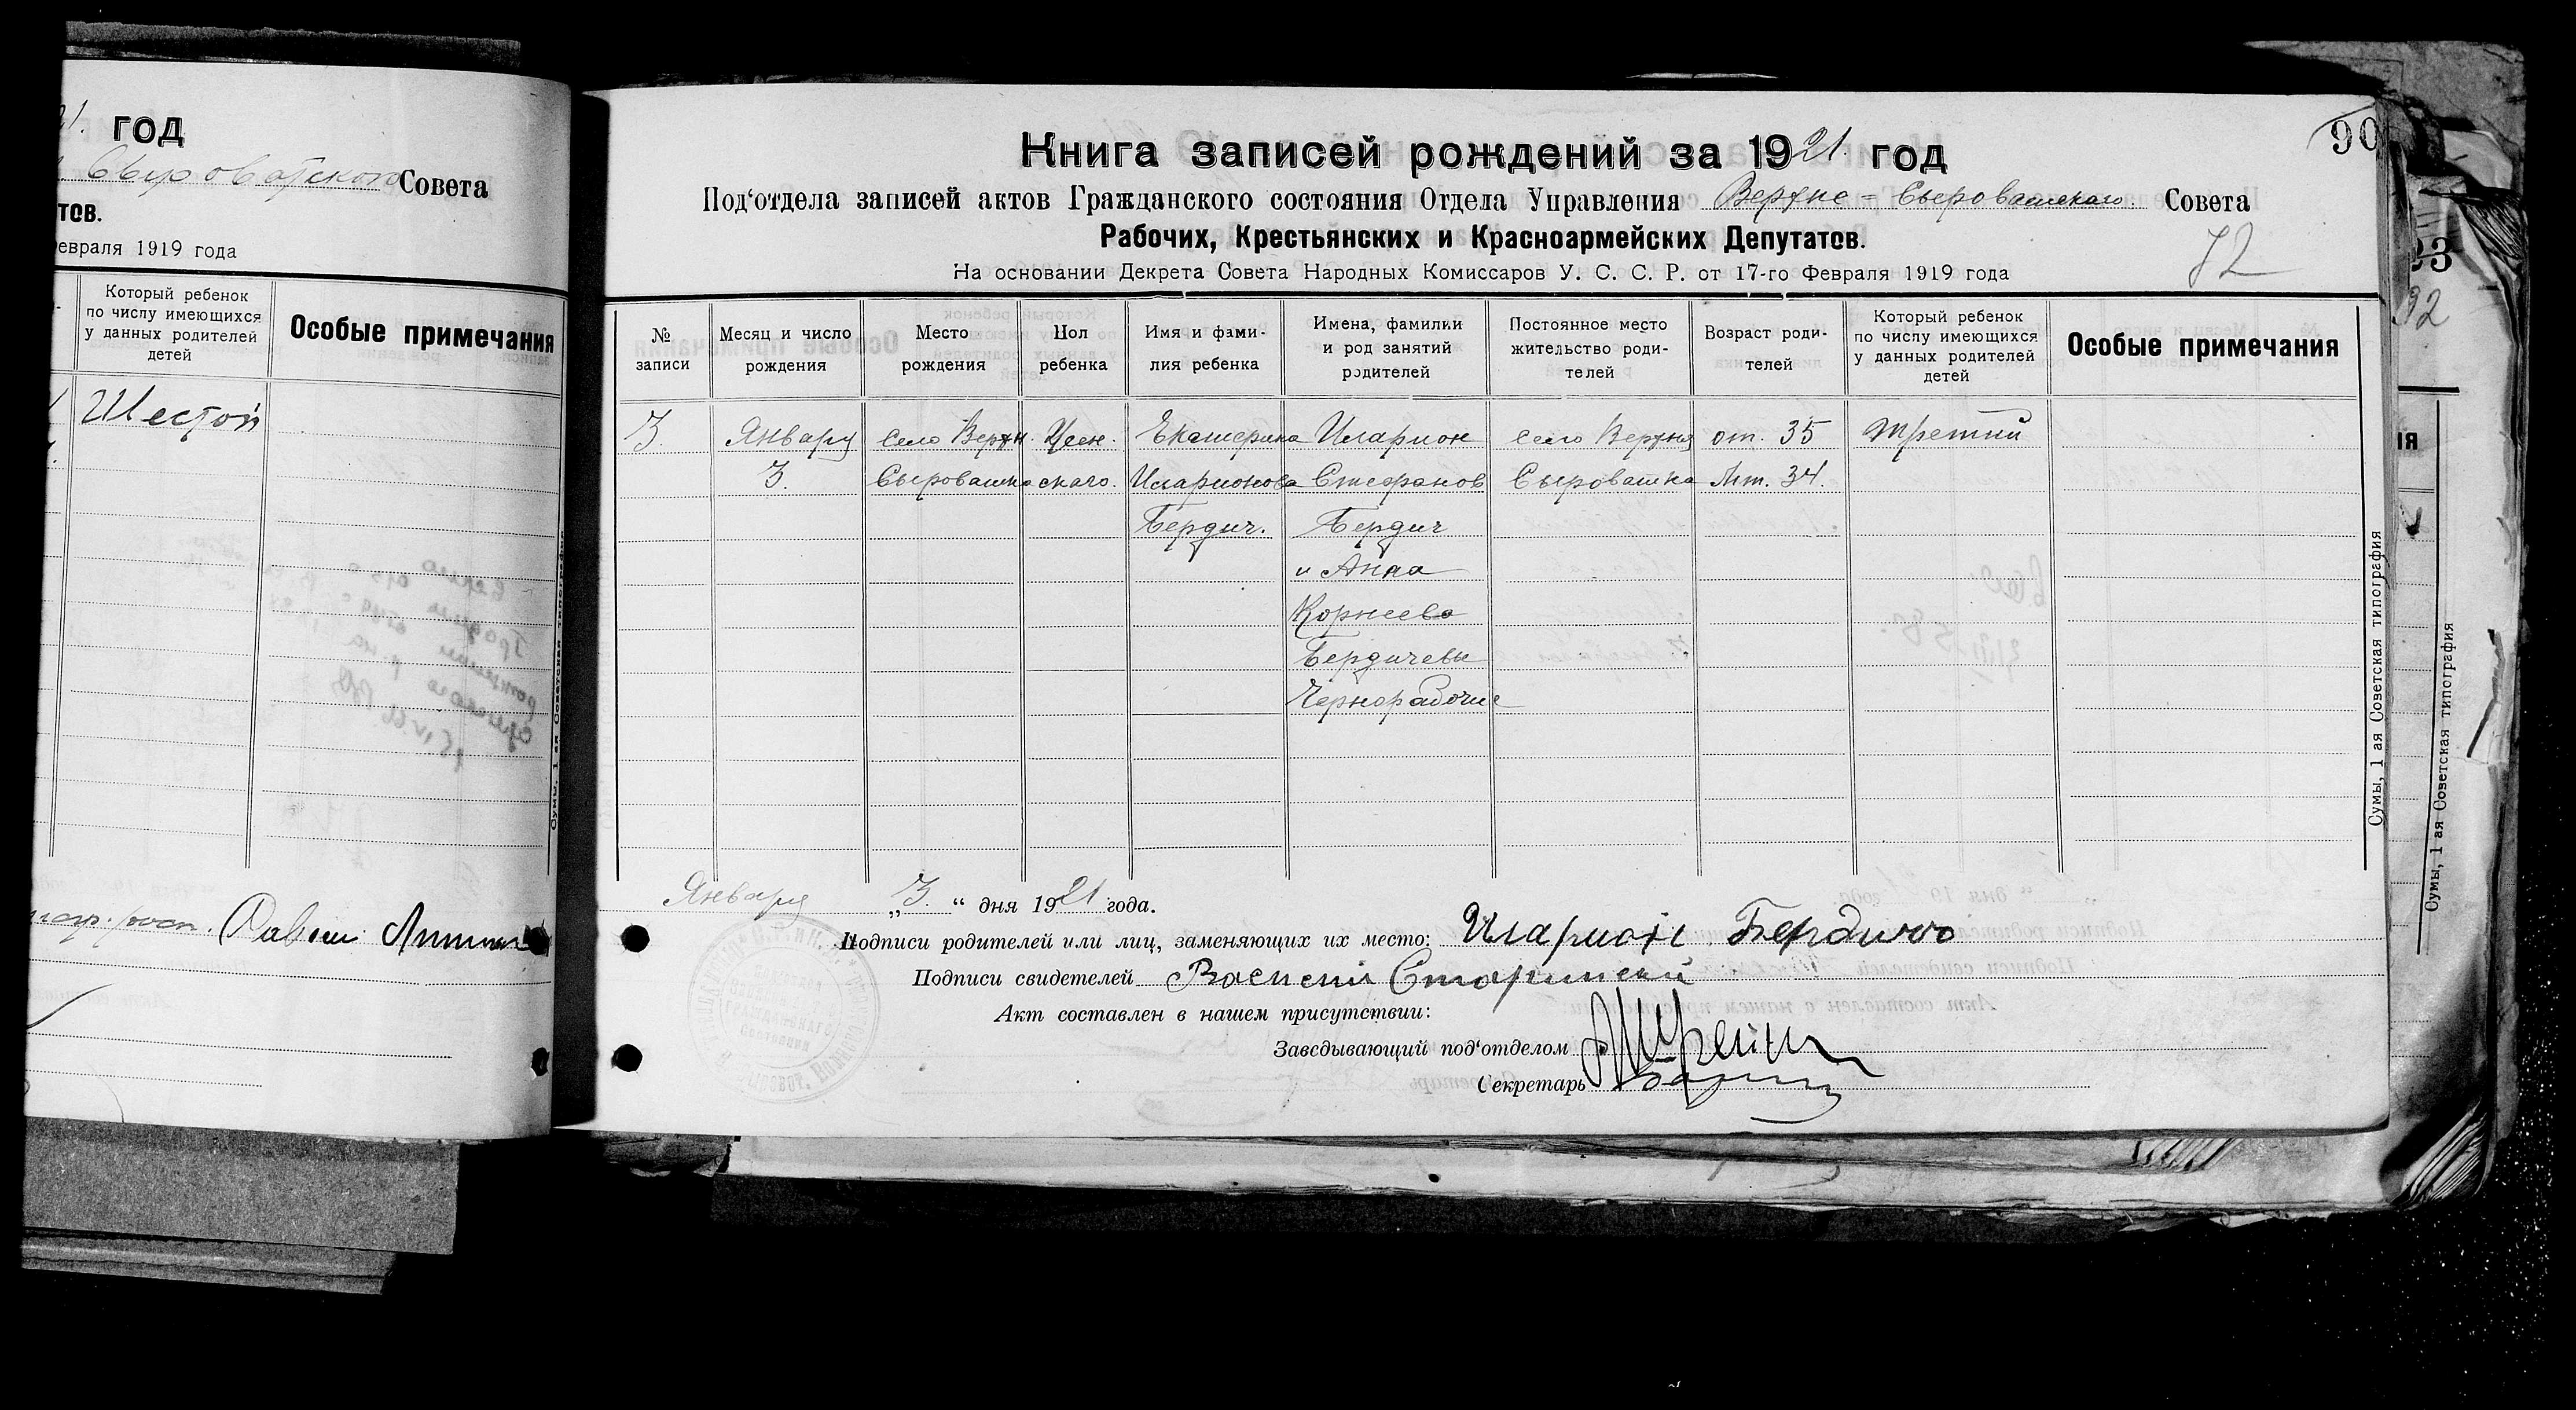 год
Сыроватского Совета
тов.
евраля 1919 года
Который ребенок
по числу имеющихся
у данных родителей
детей
Особые примечания
Шестой
Сумы, 1 ая Советская типография
90
Книга записей рождений за 1921. год
Под‘отдела записей актов Гражданского состояния Отдела Управления Верхне-Сыроватского Совета
Рабочих, Крестьянских и Красноармейских Депутатов.
72
На основании Декрета Совета Народных Комиссаров У. С. С. Р. от 17-го Февраля 1919 года
№
записи
Месяц и число
рождения
Место
рождения
Пол
ребенка
Имя и фами-
лия ребенка
Имена, фамилии
и род занятий
родителей
Постоянное место
жительство роди-
телей
Возраст роди-
телей
Который ребенок
по числу имеющихся
у данных родителей
детей
Особые примечания
3. Январь село Верхн. Жен. Екатерина Иларион село Верхня от. 35 третий
3. Сыроватка скаго. Иларионова Стефанов Сыроватка Мт. 34.
Бердич. Бердич
и Анна
Корнеева
Бердичевы
Чернорабочие
Января „3.“ дня 1921 года.
Подписи родителей или лиц, заменяющих их место: Иларион Бердичо
Подписи свидетелей Василий
Акт составлен в нашем присутствии:
Заведывающий под‘отделом
Секретарь
Сумы, 1 ая Советская типография
93
92
ия
Сумы, 1 ая Советская типография